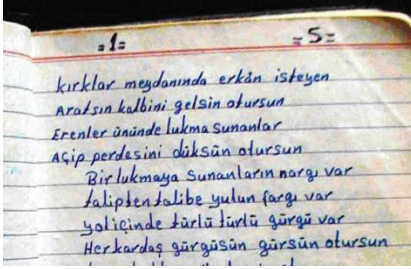 =1= =5=
kırklar meydanında erkân isteyen
Aratsın kalbini gelsin otursun
Erenler ününde lukma sunanlar
Açip perdesini düksün otursun
Bir lukmaya sunanların nargı var
talipten talibe yulun fargı var
yol içinde türlü türlü gürgü var
Her kardaş gürgüsün gürsün otursun